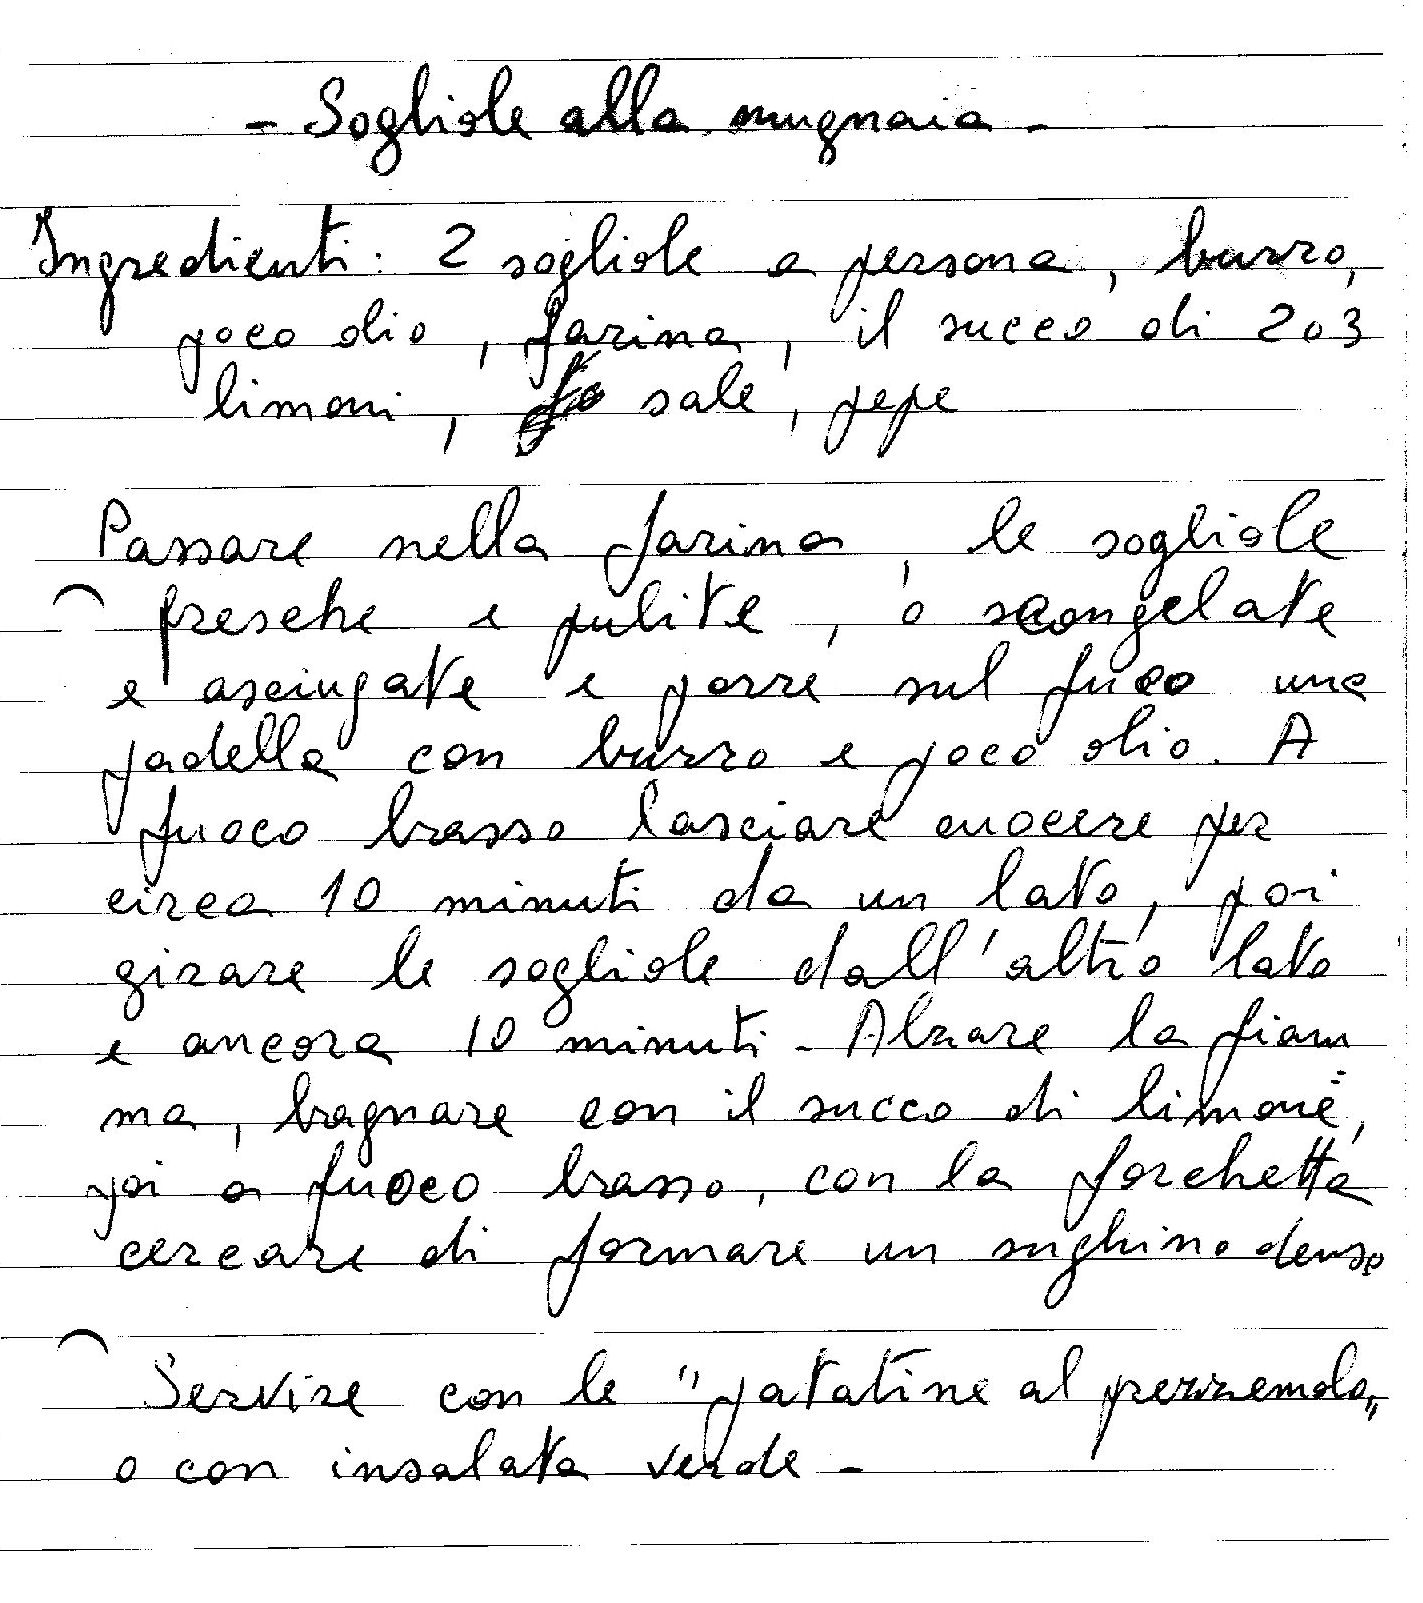 - Sogliole alla mugnaia -
Ingredienti: 2 sogliole a persona, burro,
poco olio, farina, il succo di 2 o 3
limoni, sale, pepe
Passare nella farina, le sogliole
fresche e pulite, o scongelate
e asciugate e porre sul fuoco una
padella con burro e poco olio. A
fuoco basso lasciare cuocere per
circa 10 minuti da un lato, poi
girare le sogliole dall'altro lato
e ancora 10 minuti - Alzare la fiam=
ma, bagnare con il succo di limone,
poi a fuoco basso, con la forchetta
cercare di formare un sughino denso
Servire con le "patatine al prezzemolo"
o con insalata verde -